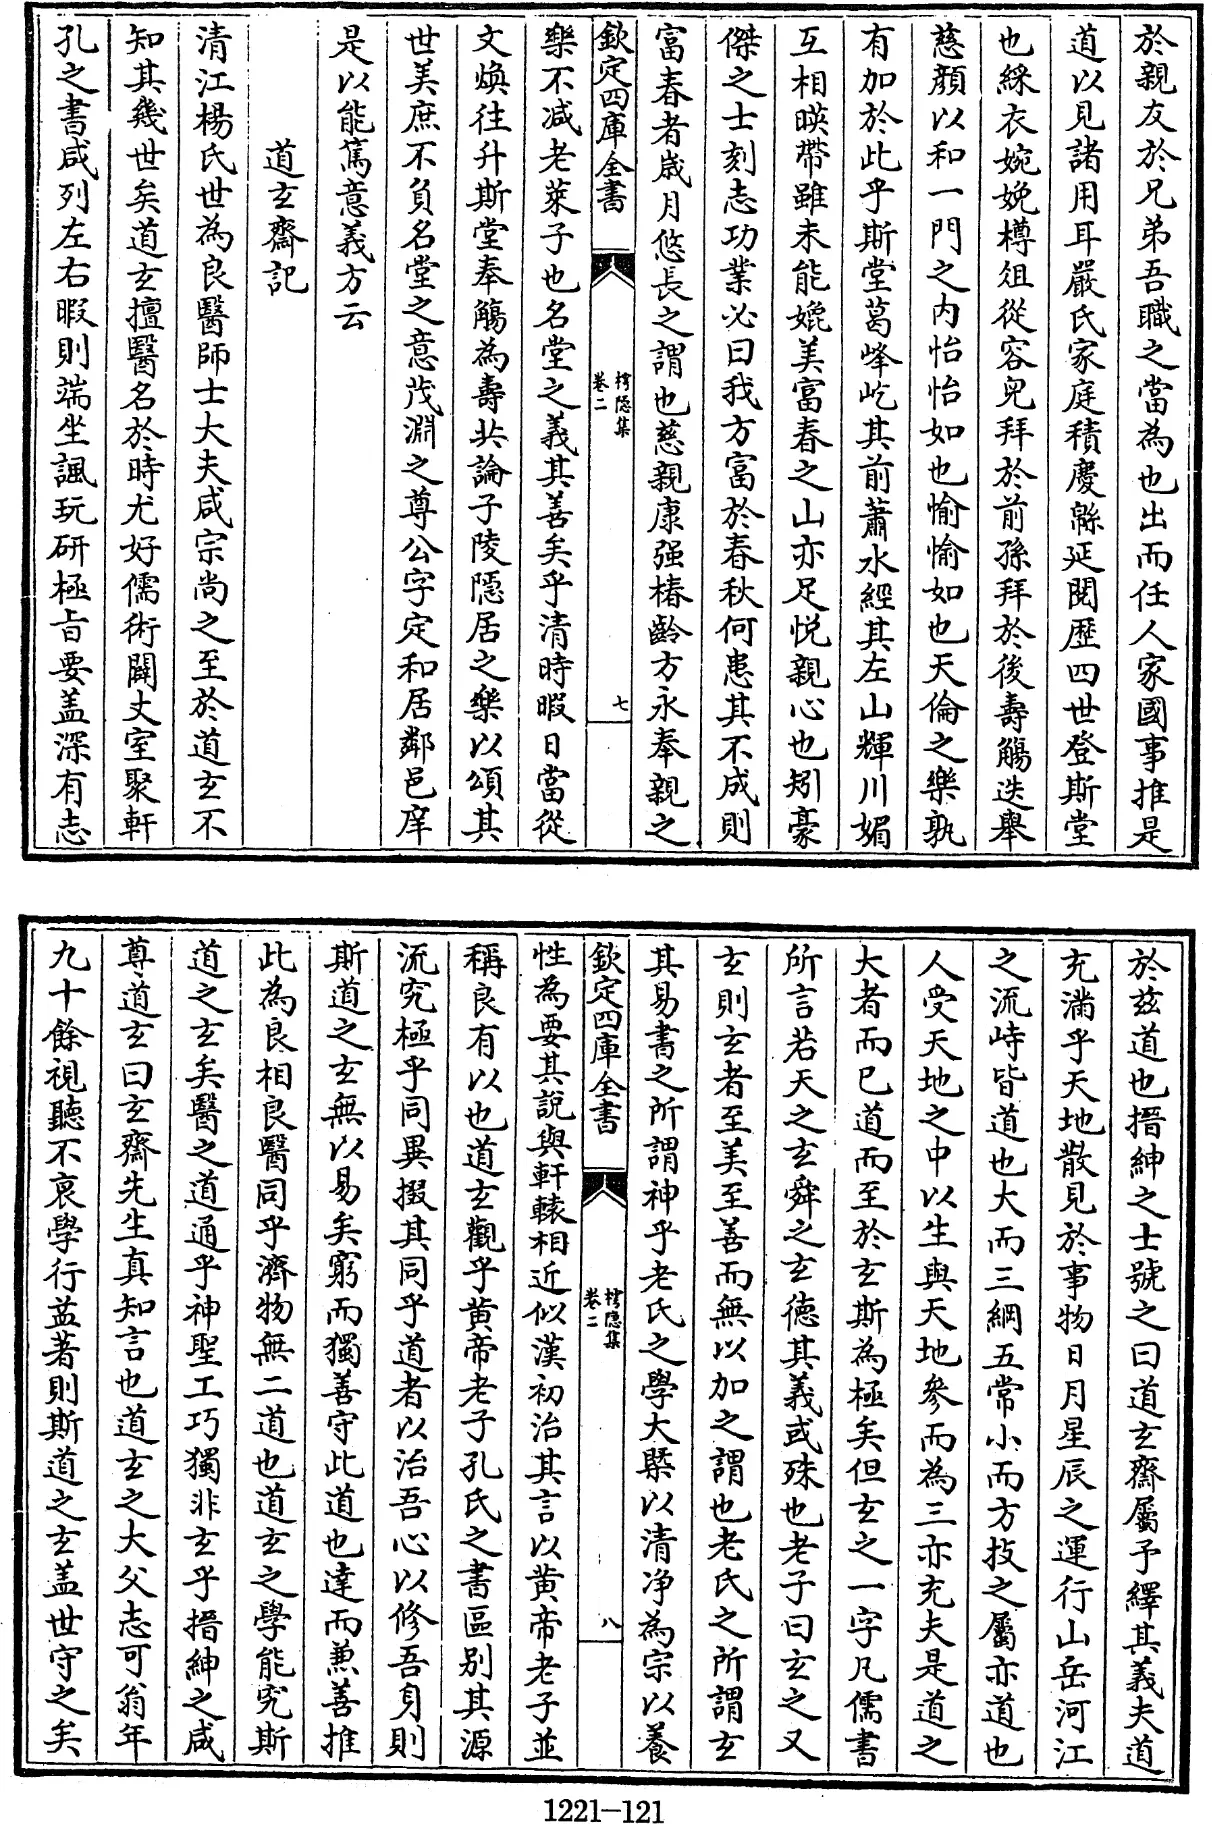 於親友於兄弟吾職之當為也出而任人家國事推是
道以見諸用耳嚴氏家庭積慶緜延閱歷四世登斯堂
也綵衣婉娩樽俎從容兒拜於前孫拜於後壽觴迭舉
慈顏以和一門之内怡怡如也愉愉如也天倫之樂孰
有加於此乎斯堂葛峰屹其前蕭水經其左山輝川媚
互相暎帶雖未能媲美富春之山亦足悅親心也矧豪
傑之士刻志功業必曰我方富於春秋何患其不成則
富春者嵗月悠長之謂也慈親康强椿齡方永奉親之
欽定四庫全書
樗隱集
卷二
七
樂不減老萊子也名堂之義其善矣乎清時暇日當從
文煥往升斯堂奉觴為壽共論子陵隱居之樂以頌其
世美庶不負名堂之意茂淵之尊公字定和居鄰邑庠
是以能篤意義方云
道玄齋記
清江楊氏世為良醫師士大夫咸宗尚之至於道玄不
知其幾世矣道玄擅醫名於時尤好儒術闢丈室聚軒
孔之書咸列左右暇則端坐諷玩研極旨要盖深有志
於茲道也搢紳之士號之曰道玄齋屬予繹其義夫道
充滿乎天地散見於事物日月星辰之運行山岳河江
之流峙皆道也大而三綱五常小而方技之屬亦道也
人受天地之中以生與天地參而為三亦充夫是道之
大者而已道而至於玄斯為極矣但玄之一字凡儒書
所言若天之玄舜之玄德其義或殊也老子曰玄之又
玄則玄者至美至善而無以加之謂也老氏之所謂玄
其易書之所謂神乎老氏之學大槩以清净為宗以養
欽定四庫全書
樗隱集
卷二
八
性為要其說與軒轅相近似漢初治其言以黄帝老子並
稱良有以也道玄觀乎黄帝老子孔氏之書區别其源
流究極乎同異掇其同乎道者以治吾心以修吾身則
斯道之玄無以易矣窮而獨善守此道也達而兼善推
此為良相良醫同乎濟物無二道也道玄之學能究斯
道之玄矣醫之道通乎神聖工巧獨非玄乎搢紳之咸
尊道玄曰玄齋先生真知言也道玄之大父志可翁年
九十餘視聽不衰學行益著則斯道之玄盖世守之矣
1221-121